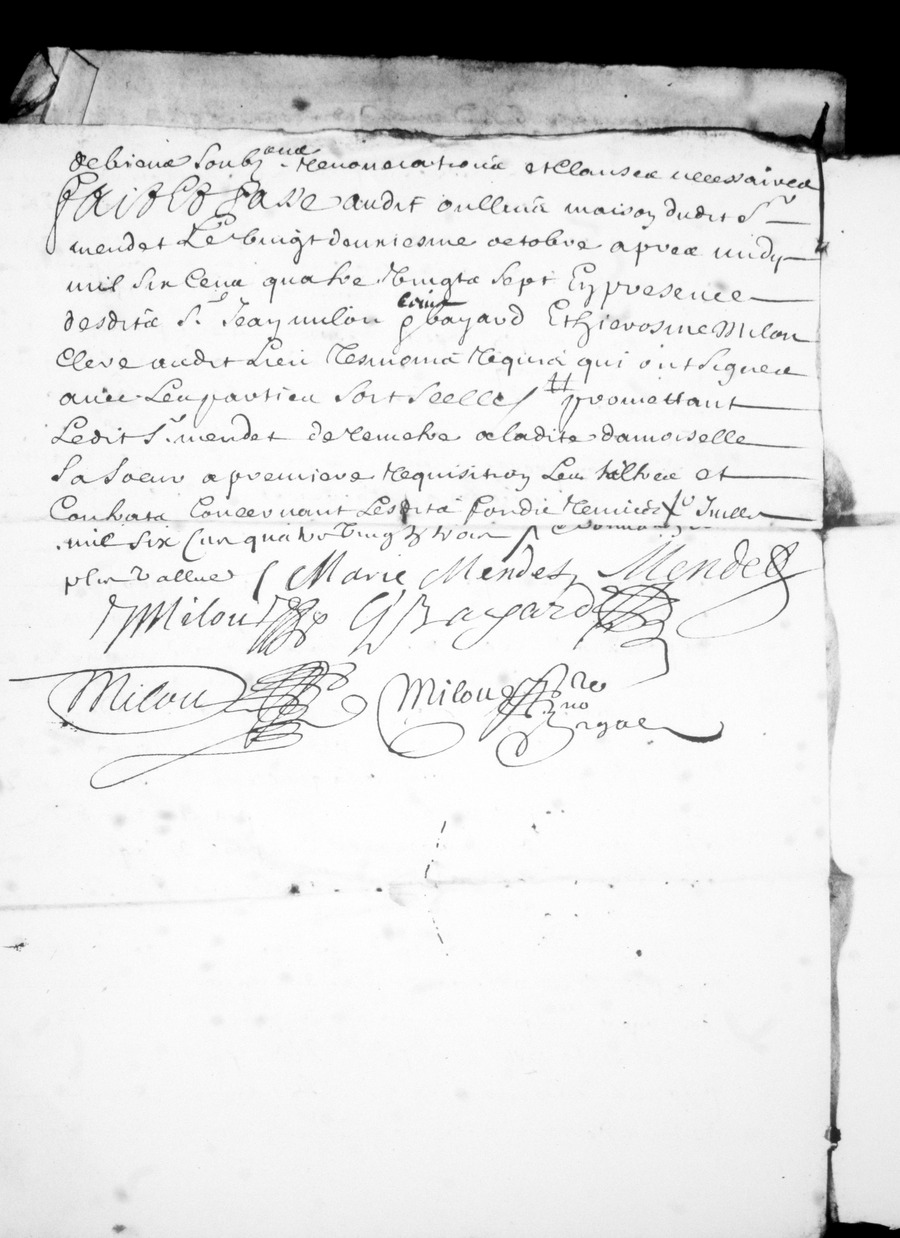 de biens soubz ones renonciations et clauses necessaires
Fait et Passe audit oullins maison dudit Sr
mendet Le vingt deuxiesme octobre apres midy
mil six cens quatre vingts sept En presence
desdits Sr Jean milou Bayard Et hierosme Milou
Clerc audit Lieu tesmoins requis qui ont signes
avec Les parties soit seelle # promettant
Ledit Sr mendet de remetre a ladite damoiselle
sa soeur a premiere requisition Les tiltres et
Contrats Concernant Lesdits fondz remis
mil six cens quatre vingtz trois
plus vallue Marie Mendes Mendes
Milou G Bayard
Milou Milou no re
royal